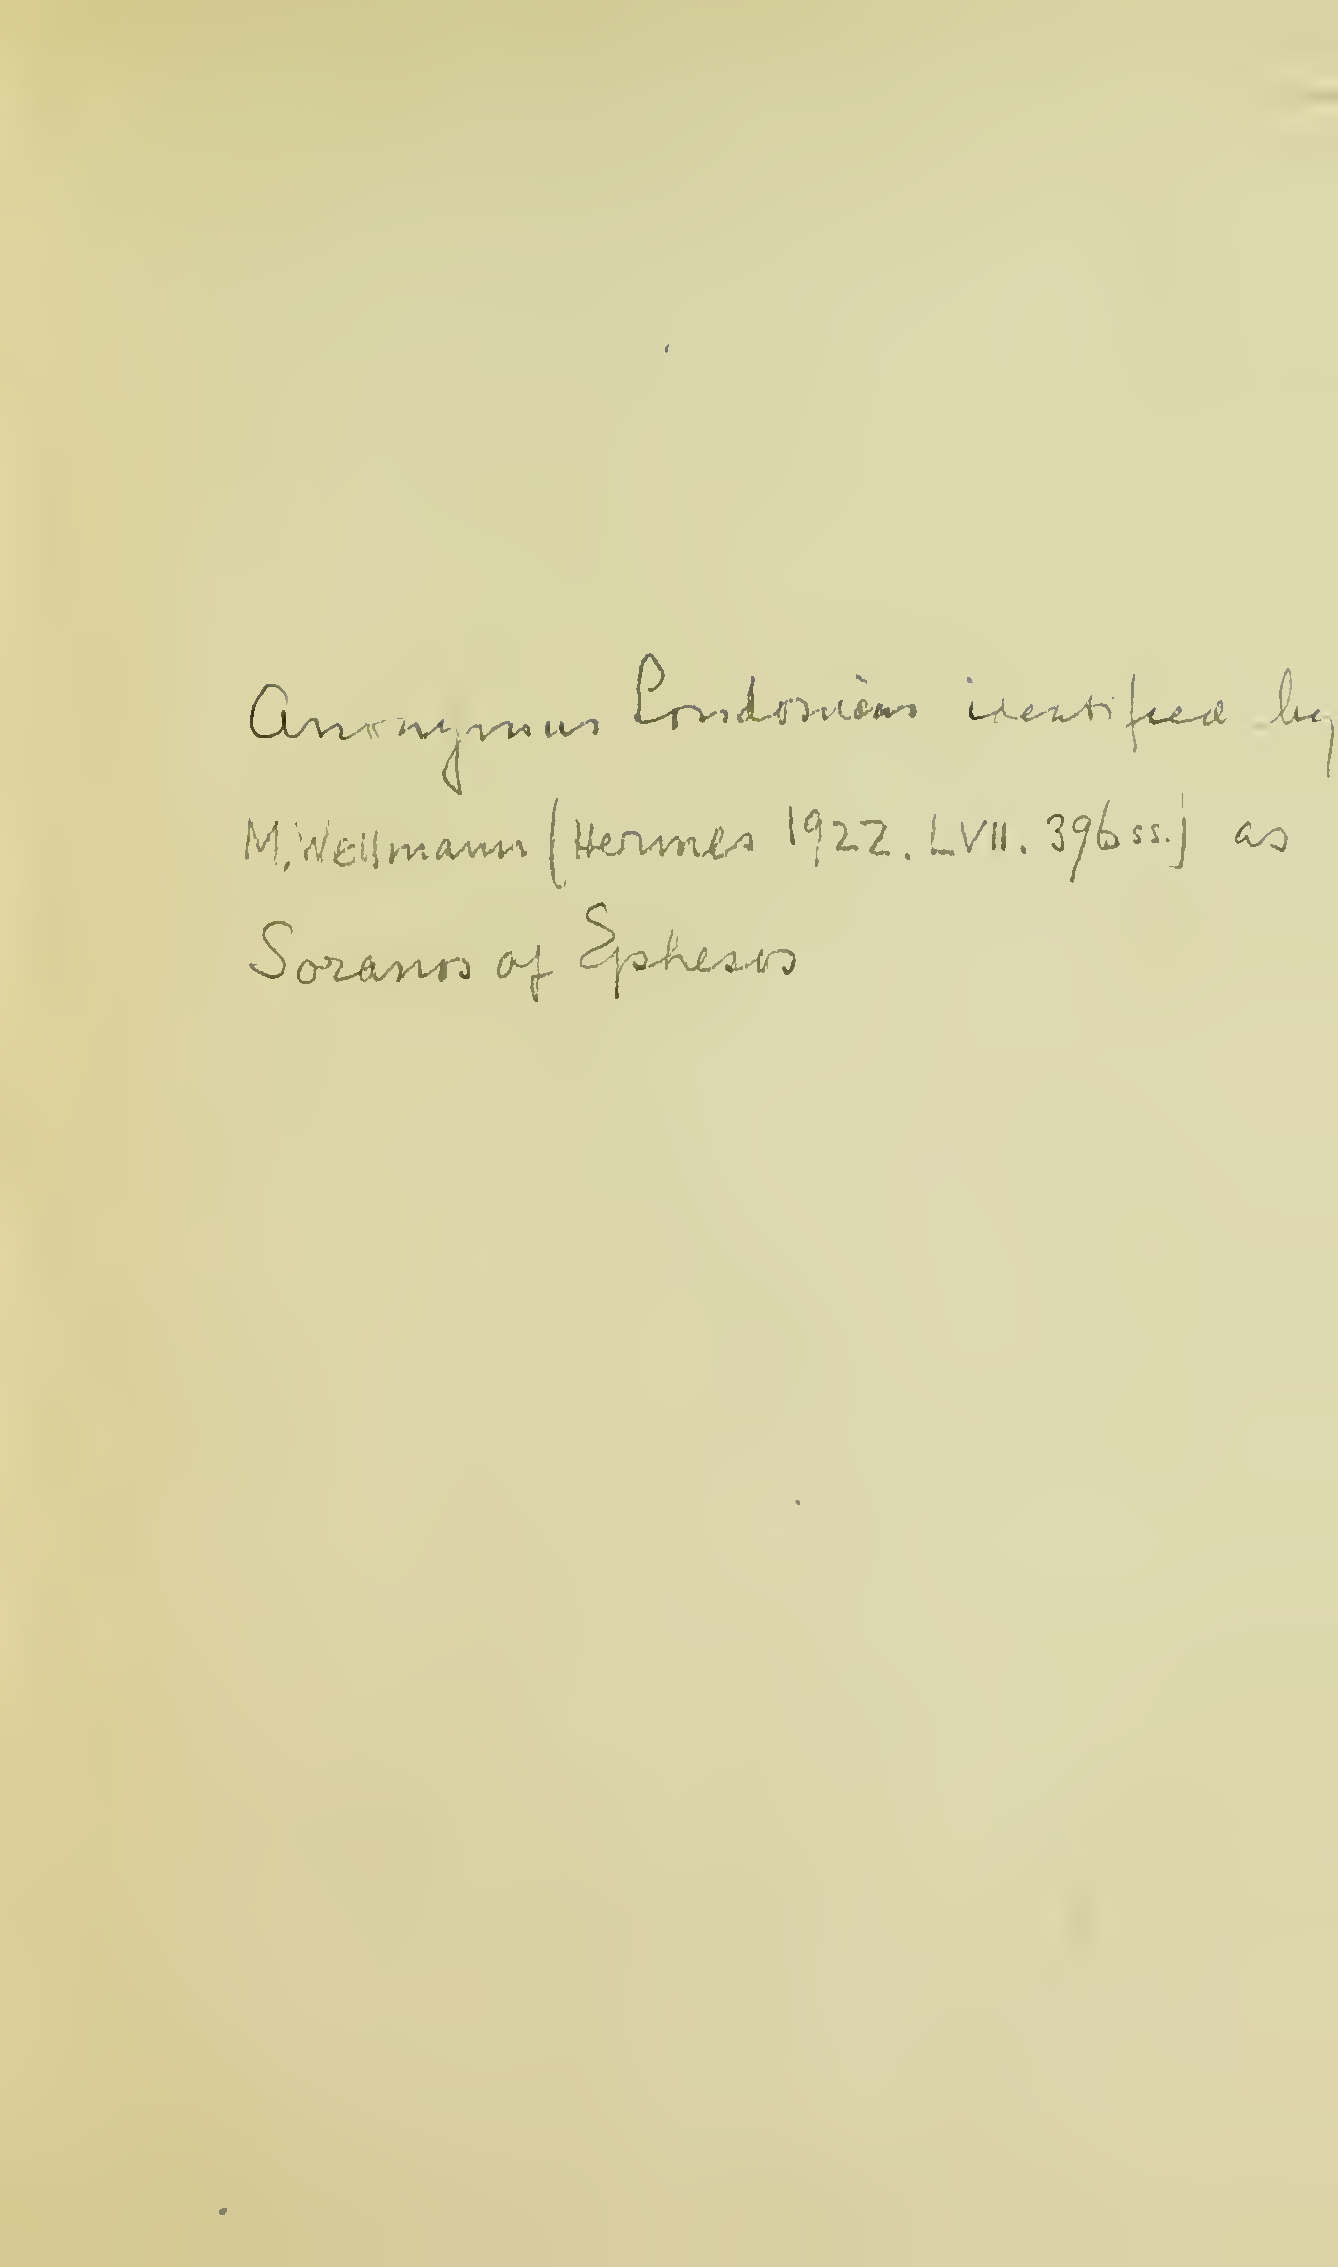 Anonymus Londoniens identified by
M. Wellmann (Hermes 1922. LVII. 396 ss.) as
Soranos of Ephesos